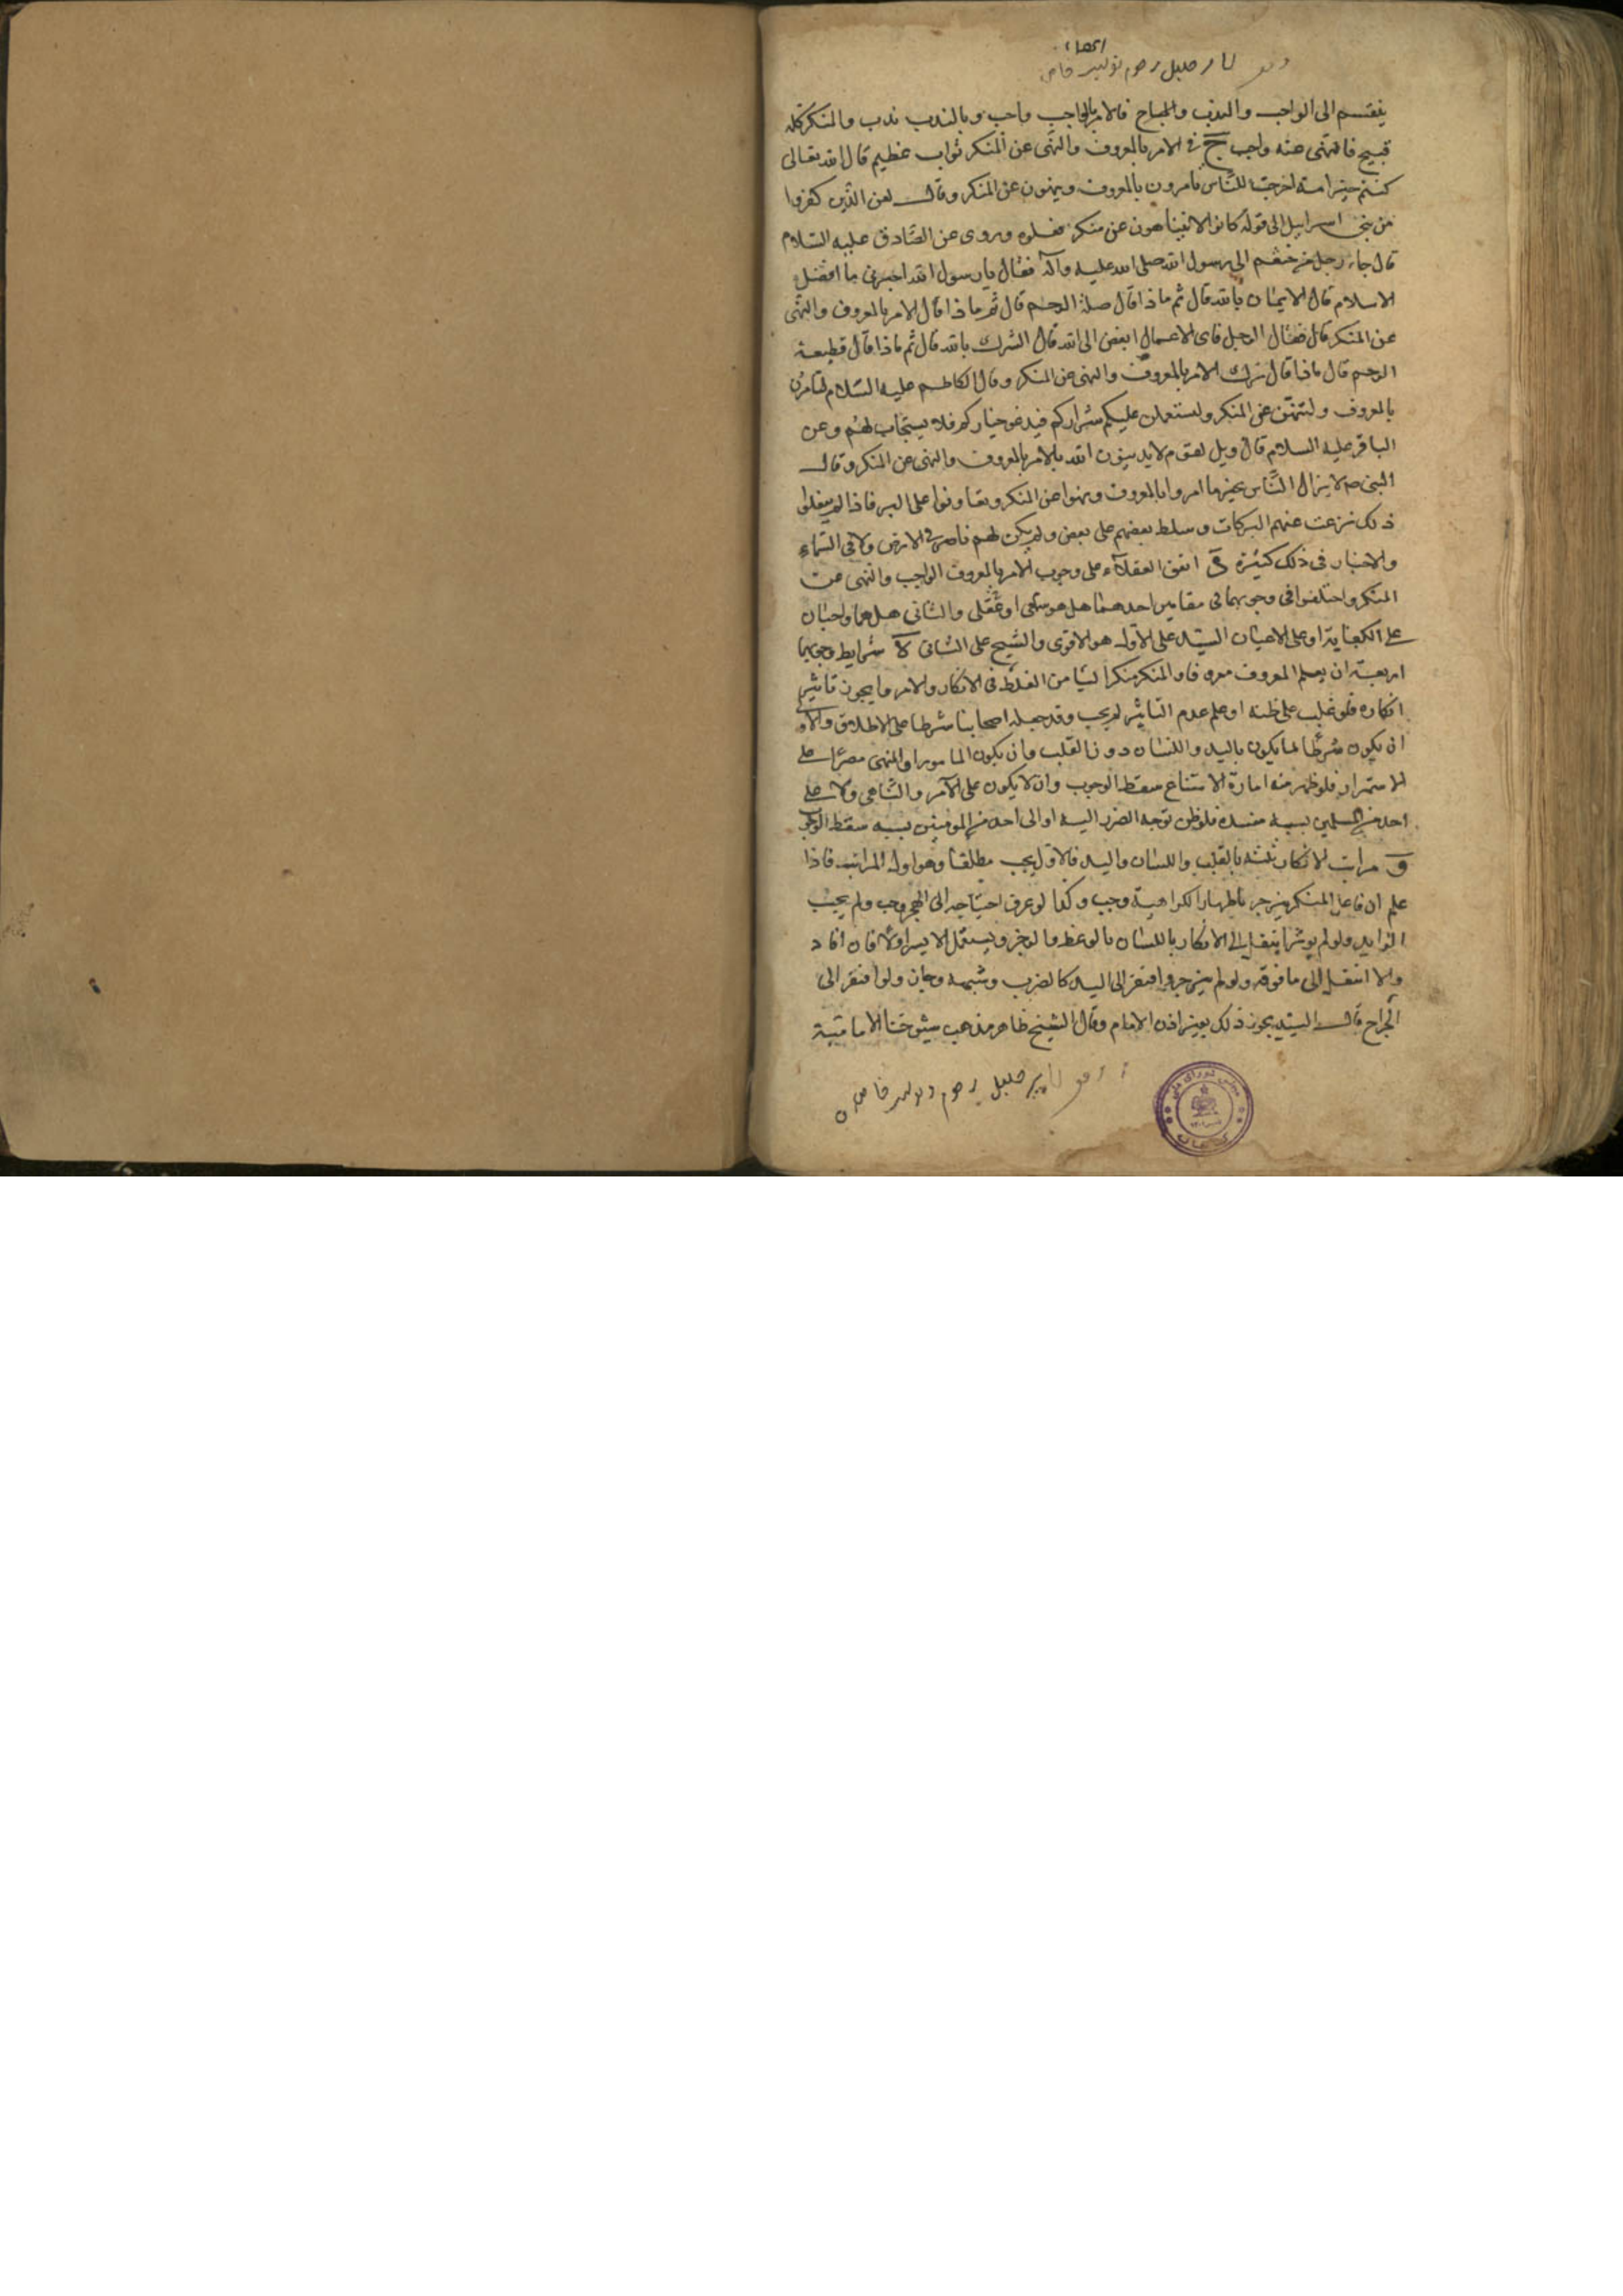 ينقسم الى الواجب والندب والمباح فالامر بالواجب واجب وبالندب ندب والمنكر كله
قبيح فالنهى عنه واجب ج في الامر بالمعروف والنهى عن المنكر ثواب عظيم قال الله تعالى
كنتم خير امة اخرجت للناس تامرون بالمعروف وينهون عن المنكر وقال لعن الذين كفروا
من بنى اسرايل الى قوله كانوا لا يتناهون عن منكر فعلوه وروى عن الصادق عليه السلام
قال جاء رجل من خثعم الى رسول الله صلى الله عليه وآله فقال يا رسول الله اخبرنى ما افضل
الاسلام قال الايمان بالله قال ثم ماذا قال صلة الرحم قال ثم ماذا قال الامر بالمعروف والنهى
عن المنكر قال فقال الرجل فاى الاعمال ابغض الى الله قال الشرك بالله قال ثم ماذا قال قطيعة
الرحم قال ماذا قال ترك الامر بالمعروف والنهى عن المنكر وقال الكاظم عليه السلام لتامرن
بالمعروف ولتنهن عن المنكر او ليستعملن عليكم شراركم فيدعو خياركم فلا يستجاب لهم وعن
الباقر عليه السلام قال ويل لقوم لا يدينون الله بالامر بالمعروف والنهى عن المنكر وقال
النبى ص لا يزال الناس بخير ما امروا بالمعروف ونهوا عن المنكر وتعاونوا على البر فاذا لم يفعلوا
ذلك نزعت عنهم البركات وسلط بعضهم على بعض ولم يكن لهم ناصر في الارض ولا في السماء
والاخبار في ذلك كثيرة د اتفق العقلاء على وجوب الامر بالمعروف الواجب والنهى عن
المنكر واختلفوا في وجوبهما في مقامين احدهما هل هو سمعى او عقلى والثانى هل هما واجبان
على الكفاية او على الاعيان السيد على الاول وهو الاقوى والشيخ على الثانى ه شرايط وجوبهما
اربعة ان يعلم المعروف معروفا والمنكر منكرا ليامن الغلط في الانكار والامر وان يجوز تاثير
انكاره فلو غلب على ظنه او علم عدم التاثير لم يجب وقد جعله اصحابنا شرطا على الاطلاق والاولى
ان يكون شرطا لما يكون باليد واللسان دون القلب وان يكون المامور او المنهى مصرا على
الاستمرار فلو ظهر منه امارة الامتناع سقط الوجوب وان لا يكون على الآمر والناهى ولا على
احد من المسلمين بسببه مفسدة فلو ظن توجه الضرر اليه او الى احد من المومنين بسببه سقط الوجوب
و مراتب الانكار ثلثة بالقلب واللسان واليد فالاول يجب مطلقا وهو اول المراتب فاذا
علم ان فاعل المنكر ينزجر باظهار الكراهية وجب وكذا لو عرف احتياجه الى الهجر وجب ولم يجب
الزايد ولو لم يوثر انتقل الى الانكار باللسان بالوعظ والزجر ويستعمل الايسر اولا فان افاد
والا انتقل الى ما فوقه ولو لم ينزجر وافتقر الى اليد كالضرب وشبهه وجاز ولو افتقر الى
الجراح قال السيد يجوز ذلك بغير اذن الامام وقال الشيخ ظاهر مذهب شيوخنا الامامية
مجلس شورای ملی
کتابخانه